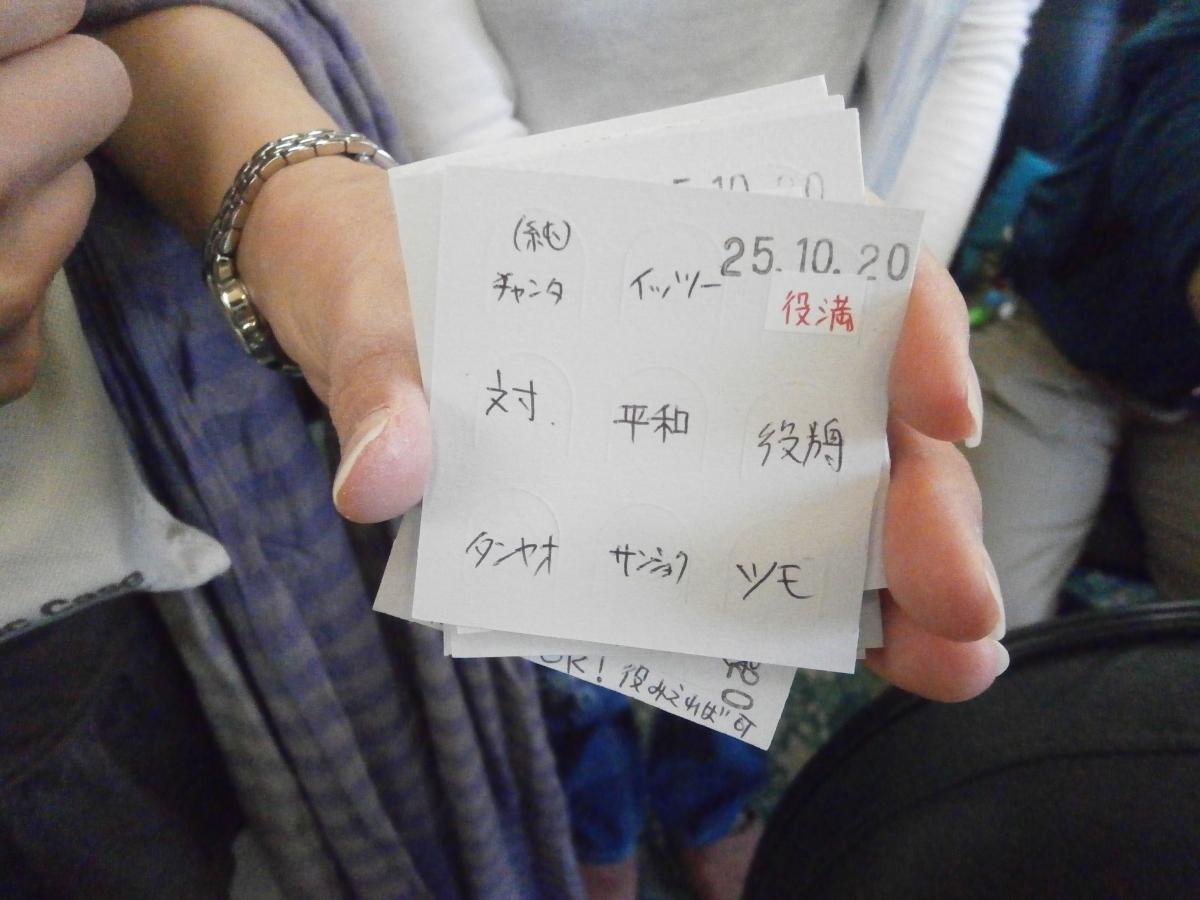 5.10.20
25.10.20
(純)
チャンタ
イッツー
役満
対.
平和
役牌
タンヤオ
サンショク
ツモ
OK! 役みえれば可
Case